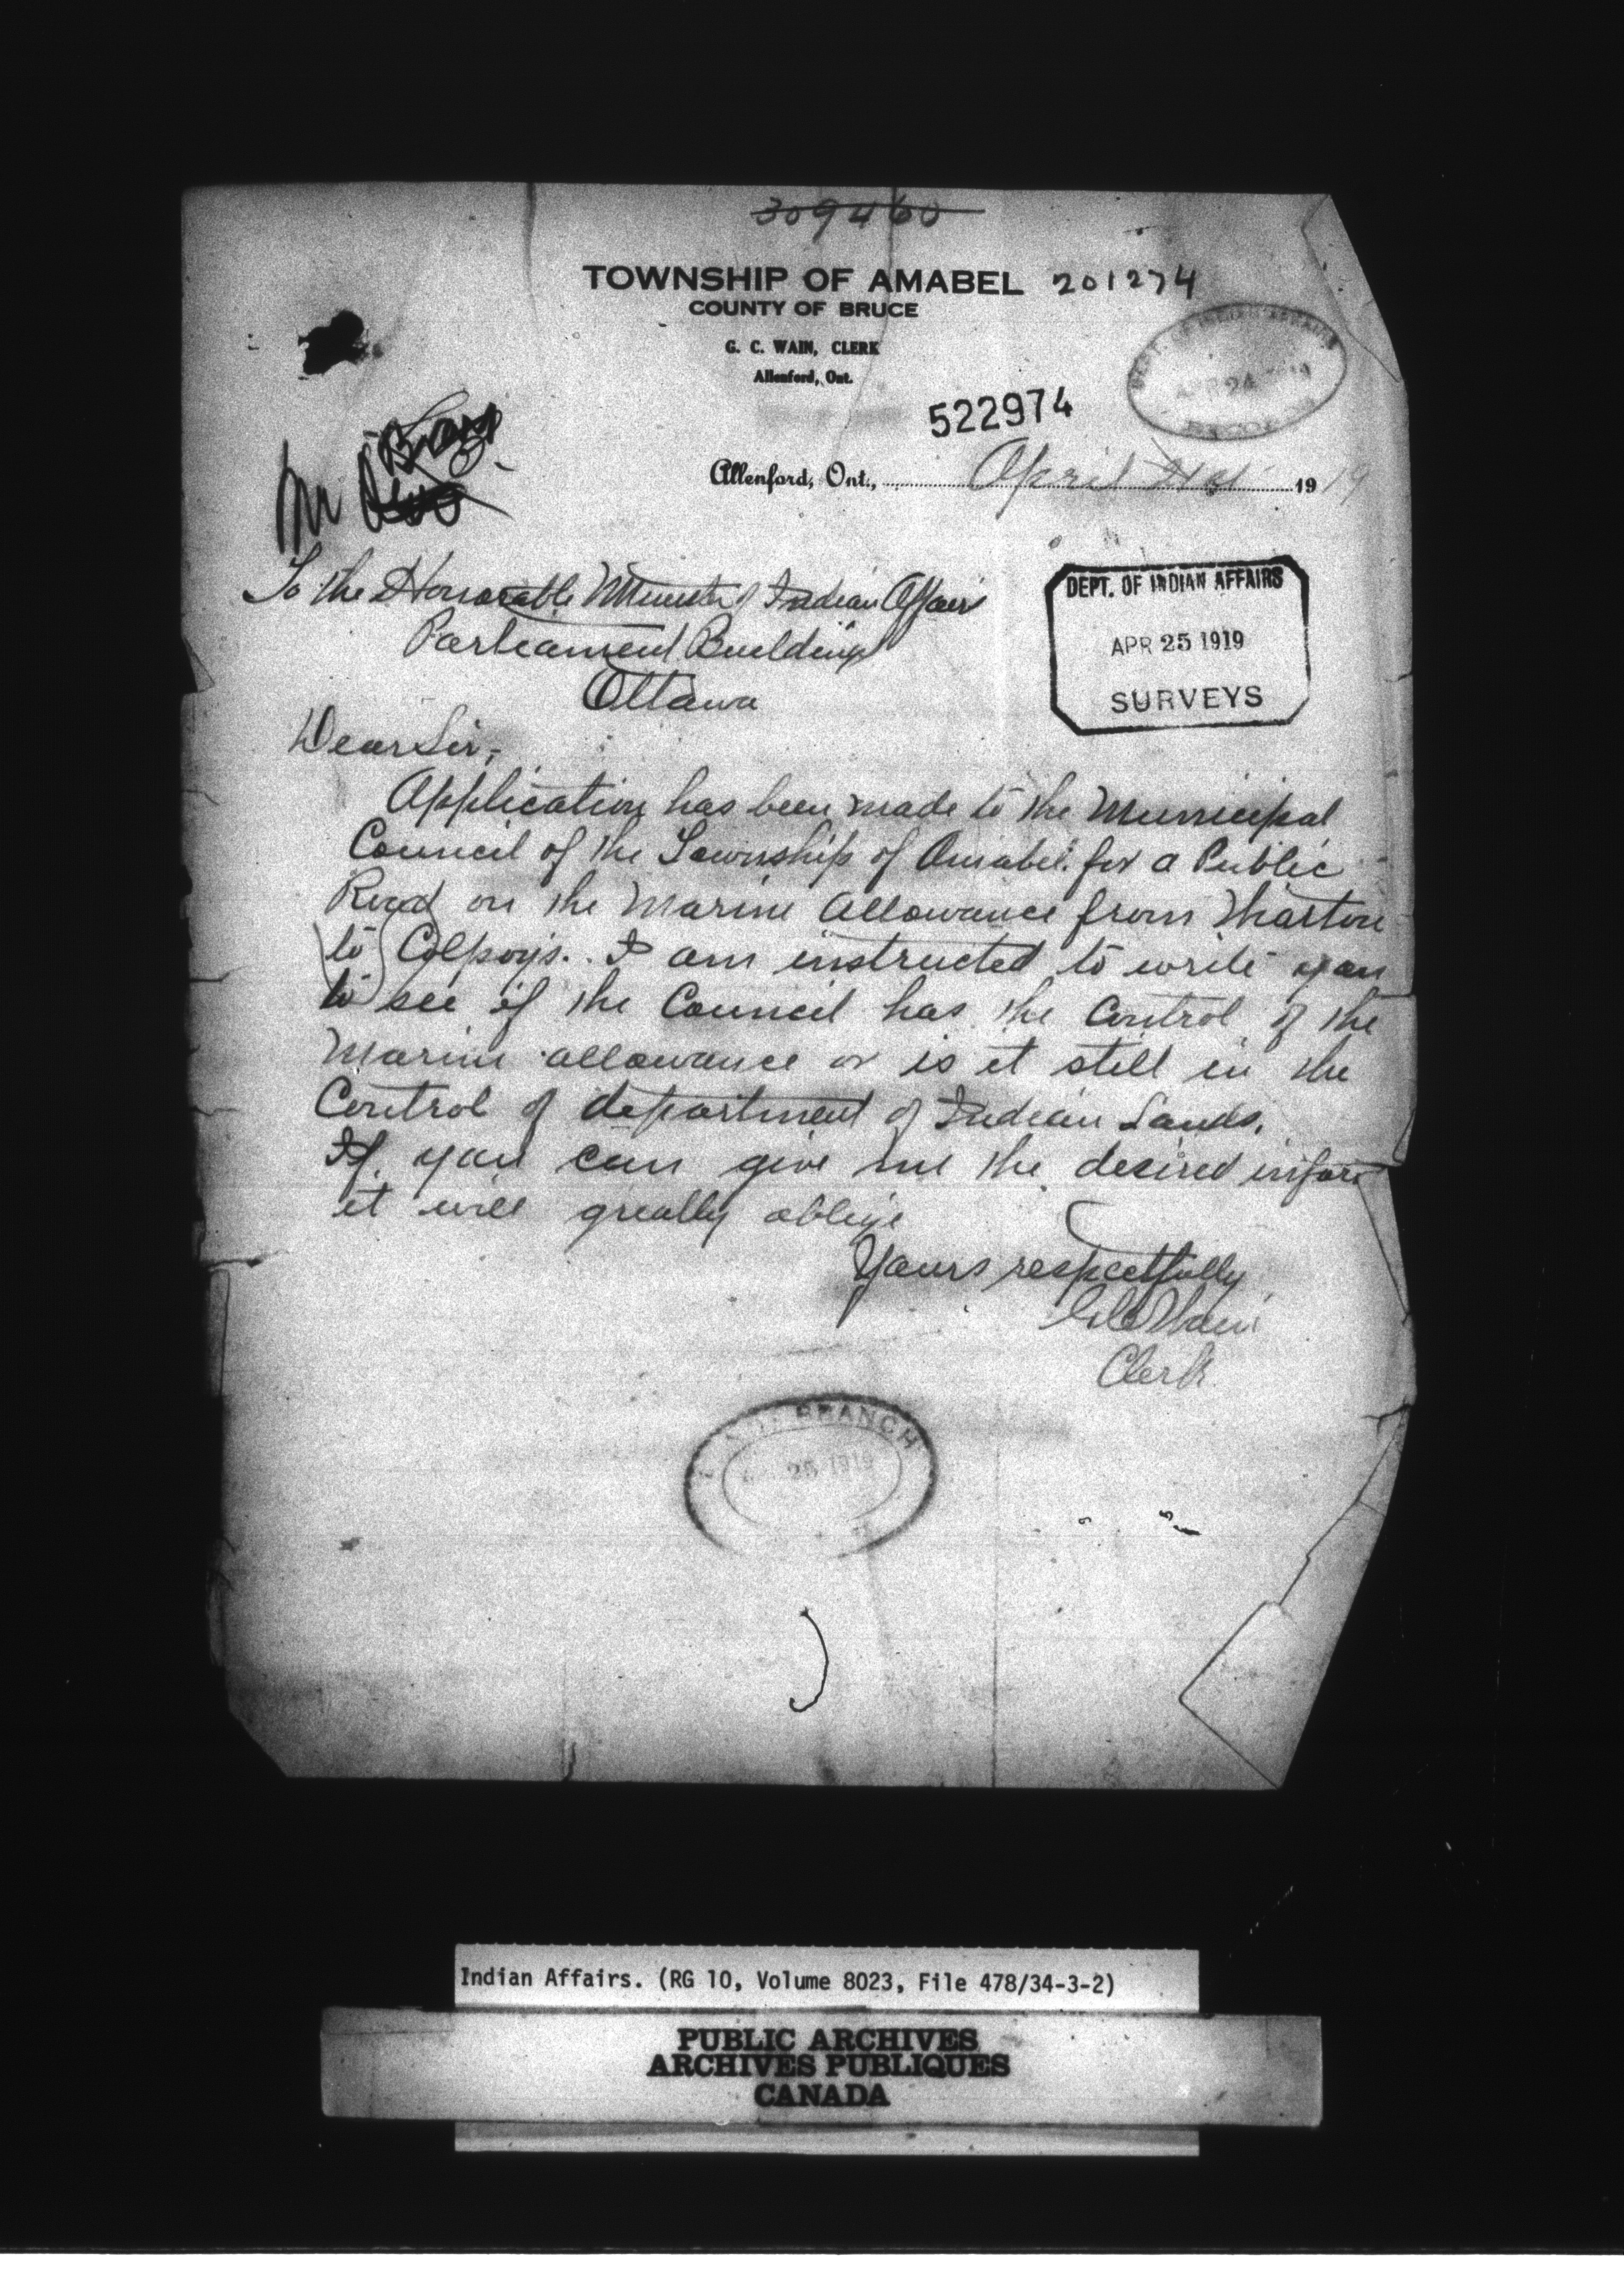 309460
TOWNSHIP OF AMABEL 201274
COUNTY OF BRUCE
G. C. WAIN, CLERK
Allenford, Ont.
DEPT. OF INDIAN AFFAIRS
APR 24 1919
522974
Mr
Allenford, Ont., April 21st 1919
To the Honorable Minister of Indian Affairs
Parliament Buildings
Ottawa
DEPT. OF INDIAN AFFAIRS
APR 25 1919
SURVEYS
Dear Sir,
Application has been made to the Municipal
Council of the Township of Amabel for a Public
Road on the Marine Allowance from Wiarton
to Colpoys. I am instructed to write you
to see if the Council has the Control of the
Marine allowance or is it still in the
Control of department of Indian Lands.
If you can give me the desired infor
it will greatly oblige
Yours respectfully
G C Wain
Clerk
BRANCH
25 1919
Indian Affairs. (RG 10, Volume 8023, File 478/34-3-2)
PUBLIC ARCHIVES
ARCHIVES PUBLIQUES
CANADA